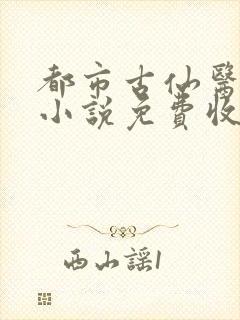 都市古仙醫
小説免費收
西山謡1